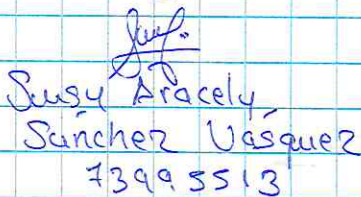 Susy Aracely
Sánchez Vásquez
73995513